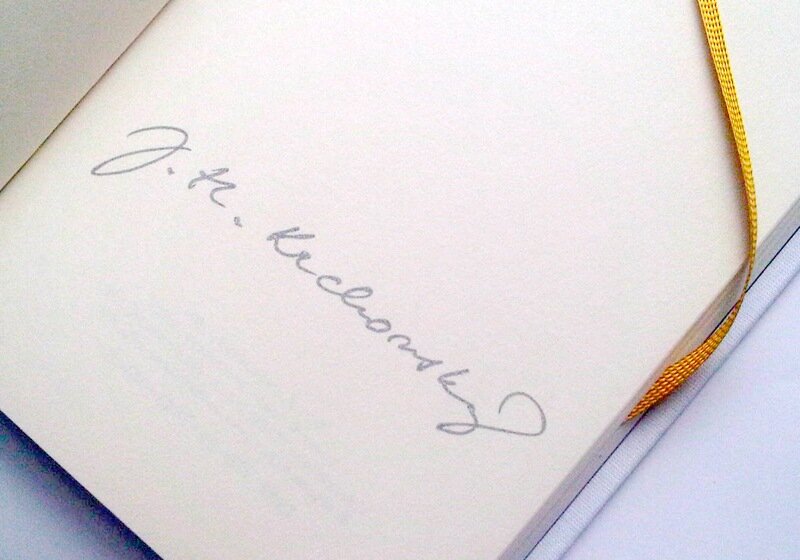 J. H. Krchovský